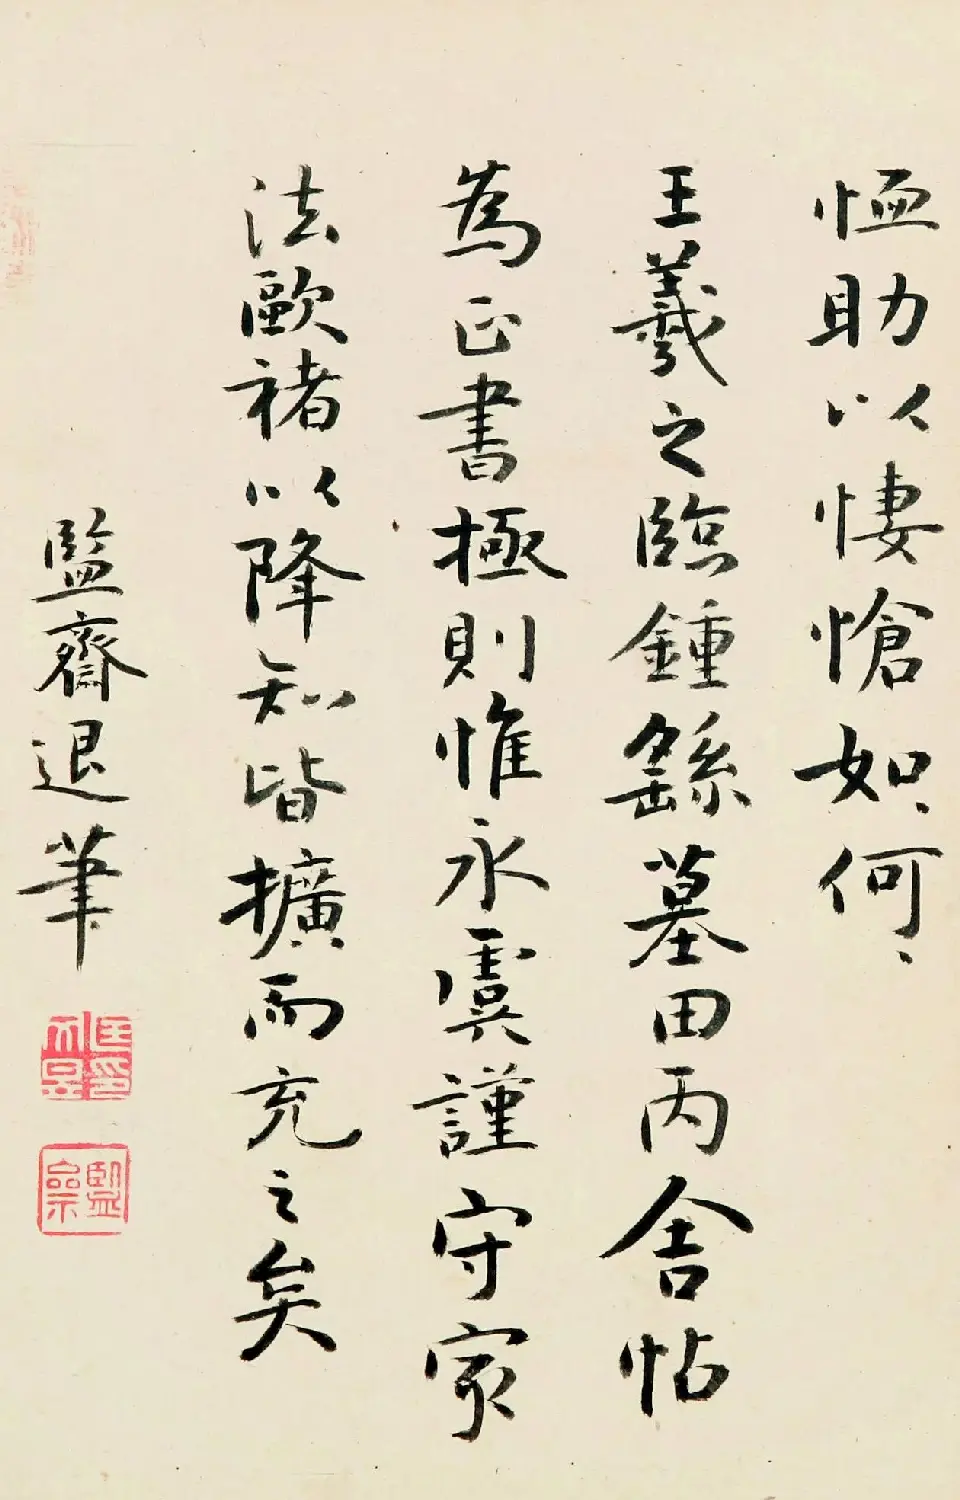 恤助以悽愴如、何、
王羲之臨鍾繇墓田丙舍帖
為正書極則惟永虞謹守家
法歐褚以降知皆擴而充之矣
監齋退筆